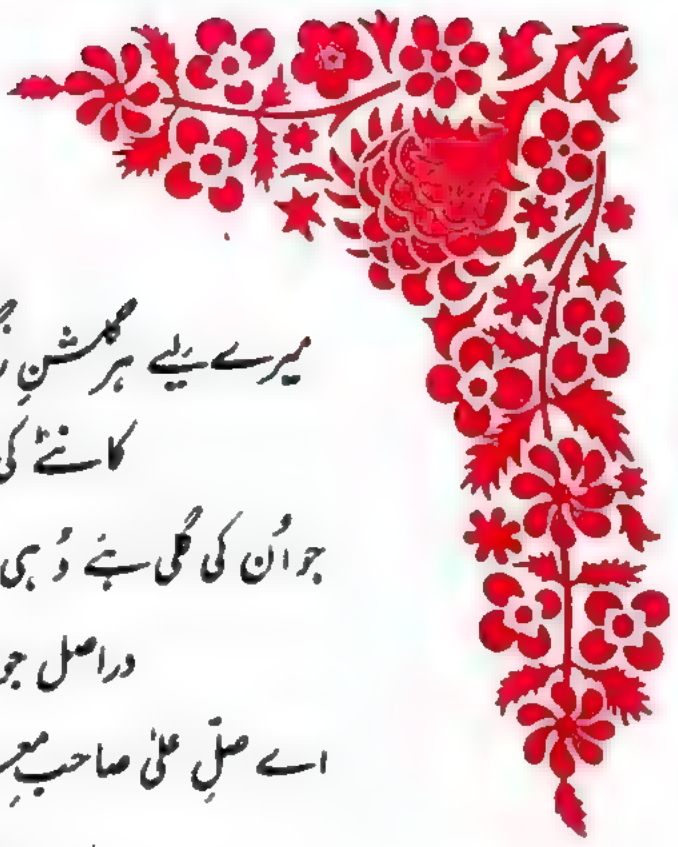 میرے لیے ہر گلشنِ
کانٹے کی
جو اُن کی گلی ہے وُہی
دراصل جو
اے صلِّ علیٰ صاحبِ